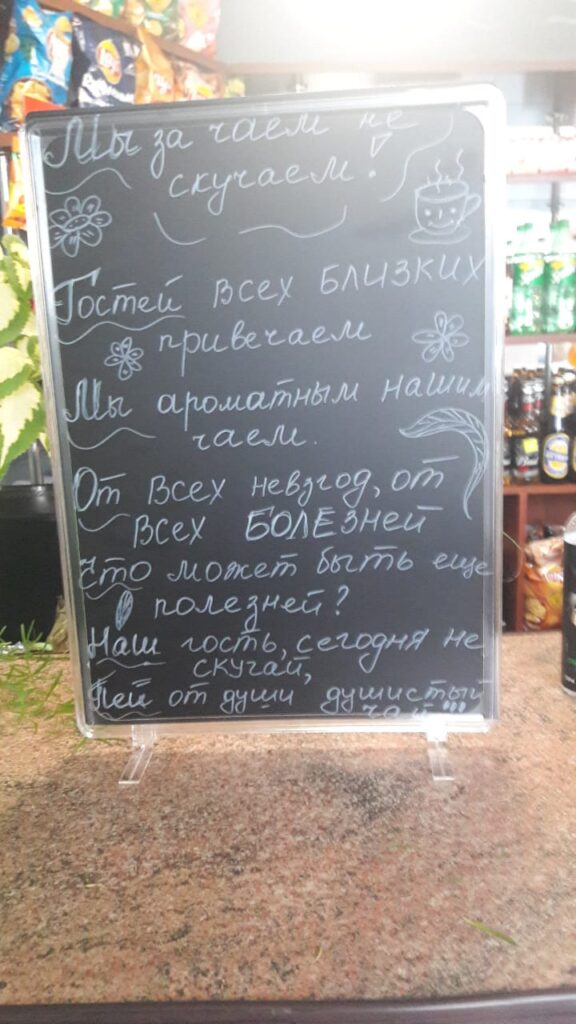 Мы за чаем не
скучаем!
Гостей всех БЛИЗКИХ
привечаем
Мы ароматным нашим
чаем.
От всех невзгод, от
всех БОЛЕЗНЕЙ
Что может быть еще
полезней?
Наш гость, сегодня не
скучай,
Пей от души душистый
чай!!!
Lay's